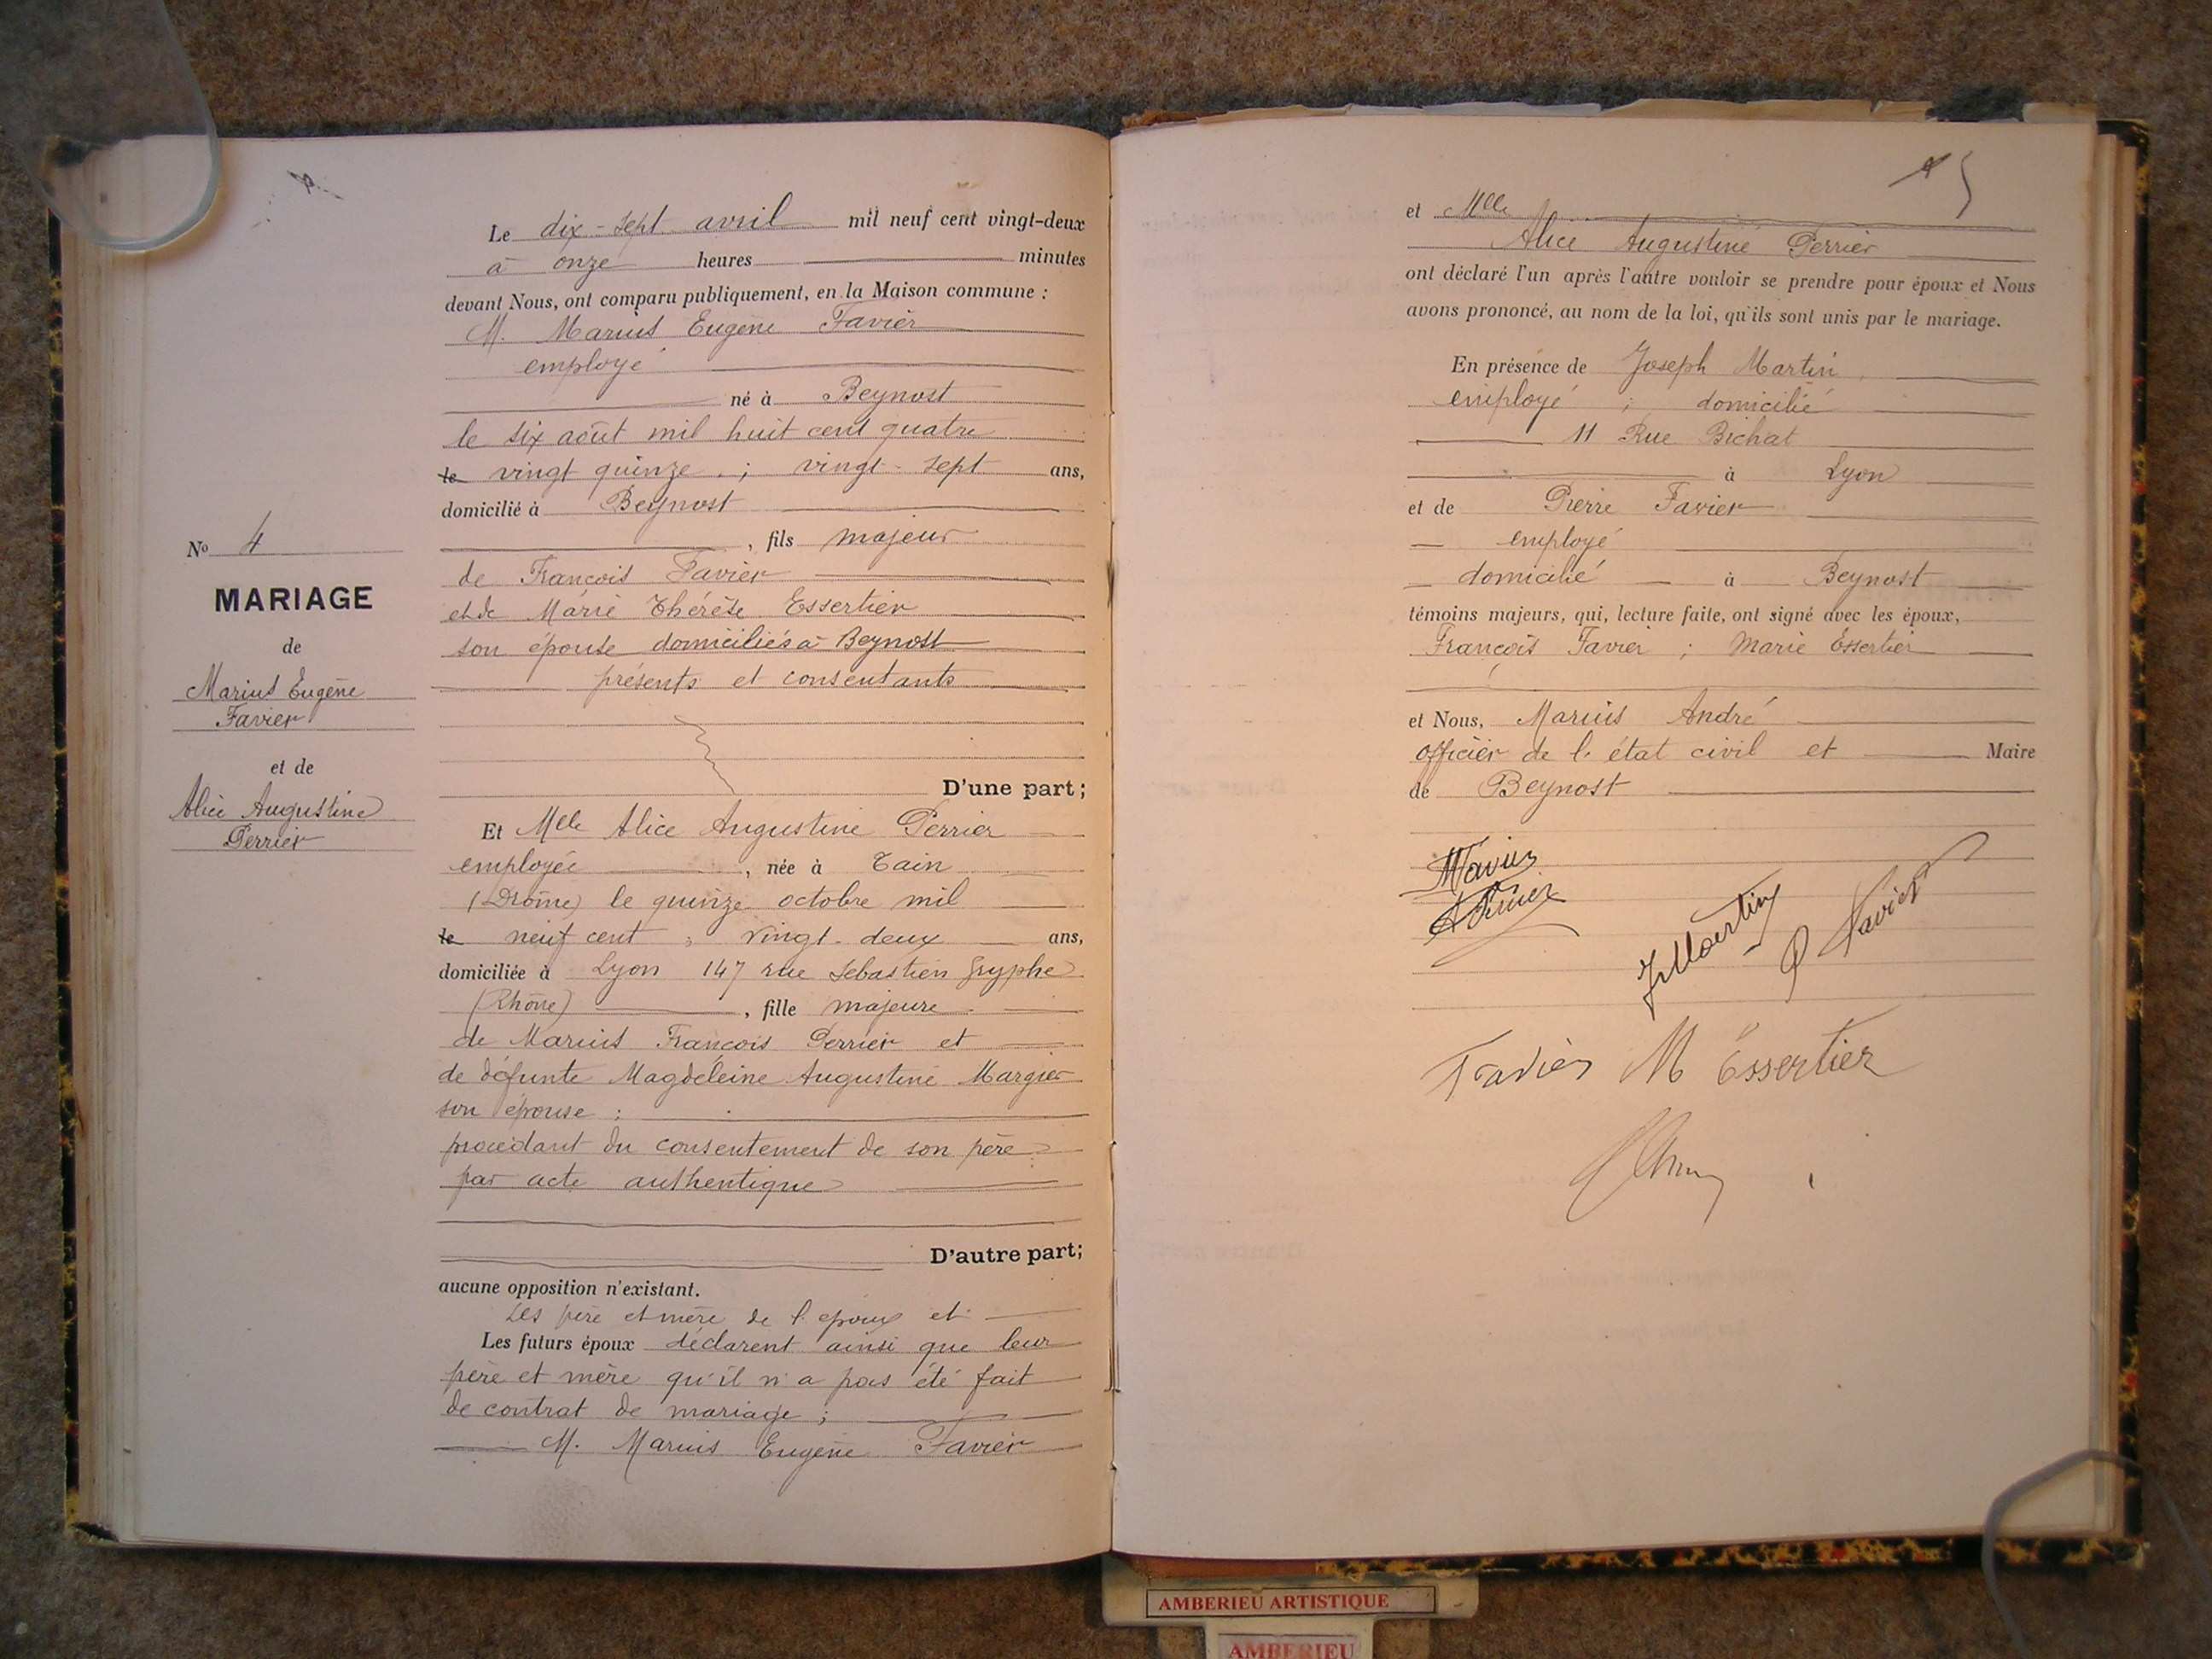 Le dix-sept avril mil neuf cent vingt-deux
à onze heures minutes
devant Nous, ont comparu publiquement, en la Maison commune :
M. Marius Eugène Favier
employé
né à Beynost
le six août mil huit cent quatre
le vingt quinze ; vingt-sept ans,
domicilié à Beynost
, fils majeur
de François Favier
et de Marie Thérèse Essertier
son épouse domiciliés à Beynost
présents et consentants
D'une part ;
No 4
MARIAGE
de
Marius Eugène
Favier
et de
Alice Augustine
Perrier
Et Mlle Alice Augustine Perrier
employée , née à Tain
(Drôme) le quinze octobre mil
le neuf cent ; vingt-deux ans,
domiciliée à Lyon 147 rue Sébastien Gryphe
(Rhône) , fille majeure
de Marius François Perrier et
de défunte Magdeleine Augustine Margier
son épouse ;
procédant du consentement de son père
par acte authentique
D'autre part ;
aucune opposition n'existant.
Les père et mère de l'époux et
Les futurs époux déclarent ainsi que leur
père et mère qu'il n'a pas été fait
de contrat de mariage ;
M. Marius Eugène Favier
et Mlle
Alice Augustine Perrier
ont déclaré l'un après l'autre vouloir se prendre pour époux et Nous
avons prononcé, au nom de la loi, qu'ils sont unis par le mariage.
En présence de Joseph Martin
employé ; domicilié
11 Rue Bichat
à Lyon
et de Pierre Favier
employé
domicilié à Beynost
témoins majeurs, qui, lecture faite, ont signé avec les époux,
François Favier ; Marie Essertier
et Nous, Marius André
officier de l'état civil et Maire
de Beynost
MFavier
A Perrier
J Martin
P Favier
Favier M Essertier
AMBERIEU ARTISTIQUE
AMBERIEU